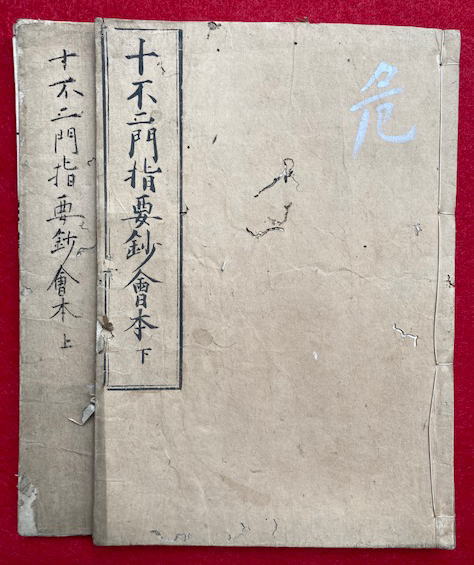 危
十不二門指要鈔會本 下
十不二門指要鈔會本 上